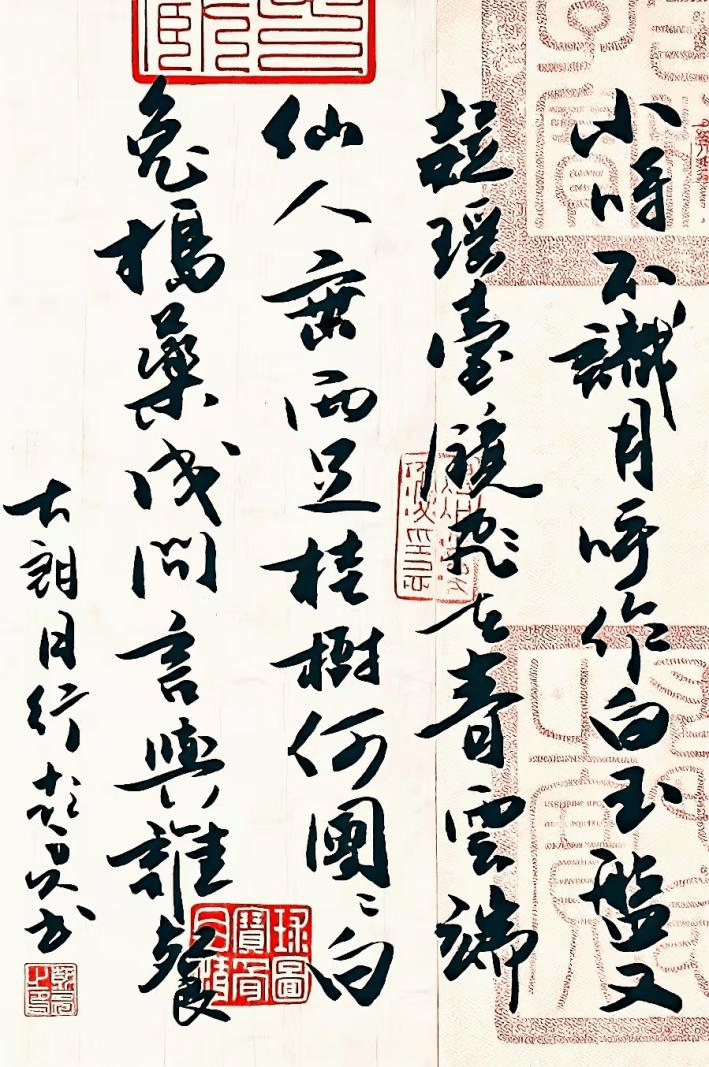 小時不識月呼作白玉盤又
疑瑶臺鏡飛在青雲端
仙人垂兩足桂樹何團々白
兔搗藥成問言與誰餐
古朗月行 書